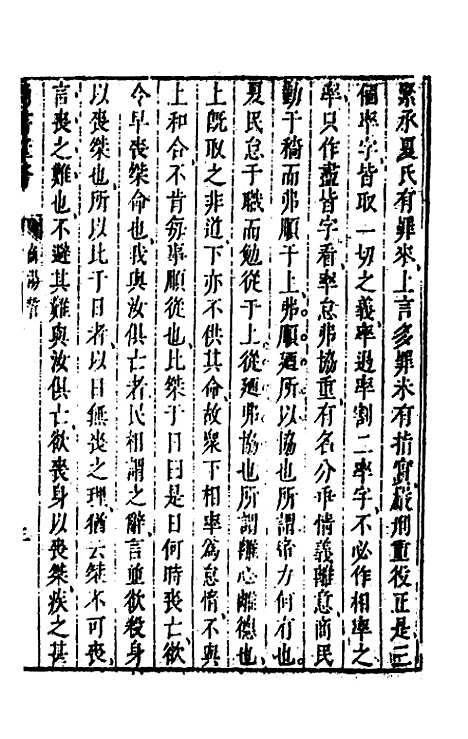 緊承夏氏有罪來上言多罪未有指實嚴刑重役正是三
個率字皆取一切之義率遏率割二率字不必作相率之
率只作蓋皆字看率怠弗協重有名分乖情義離意商民
勤于穡而弗順于上弗順廼所以協也所謂帝力何有也
夏民怠于職而勉從于上從廼弗協也所謂離心離德也
上旣取之非道下亦不供其命故衆下相率爲怠惰不與
上和合不肯每事順從也比桀于日曰是日何時喪亡欲
令早喪桀命也我與汝俱亡者民相謂之辭言並欲殺身
以喪桀也所以比于日者以日無喪之理猶云桀不可喪
言喪之難也不避其難與汝俱亡欲喪身以喪桀疾之甚
湯誓
三